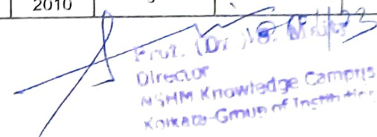 2010
Prof. (Dr.)
Director
NSHM Knowledge Campus
Kolkata-Group of Institutions